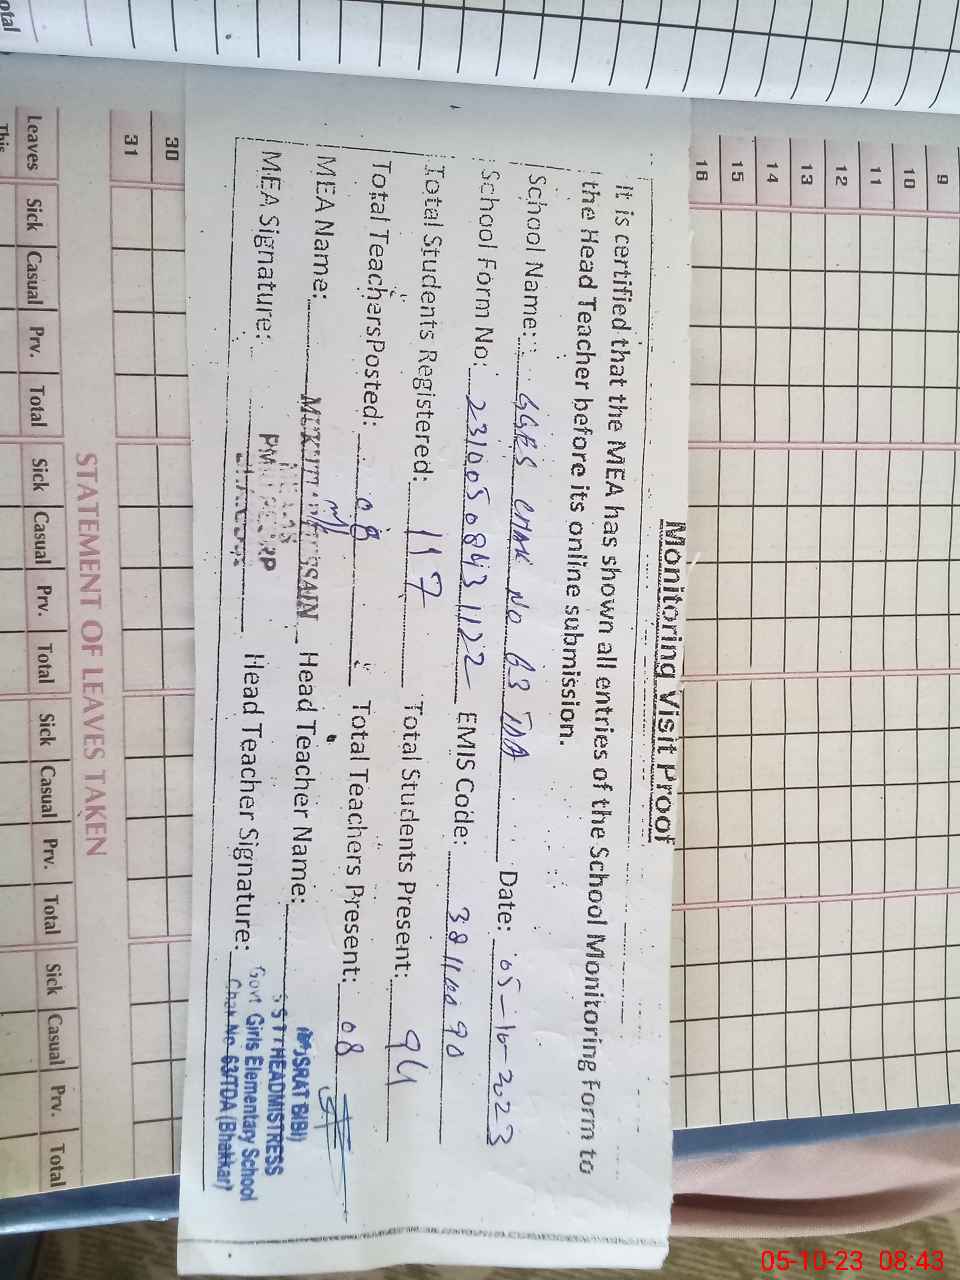 Monitoring Visit Proof
It is certified that the MEA has shown all entries of the School Monitoring Form to
the Head Teacher before its online submission.
School Name: GGES CHAK NO 63 TDA Date: 05-10-2023
School Form No: 23100508431122 EMIS Code:
Total Students Registered: 117 Total Students Present: 94
Total Teachers Posted: 08 Total Teachers Present: 08
MEA Name: Head Teacher Name:
MEA Signature: Head Teacher Signature:
BIBI)
HEADMISTRESS
Govt Girls Elementary School
Chak No 63/TDA (Bhakkar)
9
10
11
12
13
14
15
16
30
31
STATEMENT OF LEAVES TAKEN
Leaves Sick Casual Prv. Total Sick Casual Prv. Total Sick Casual Prv. Total Sick Casual Prv. Total
This
05-10-23 08:43